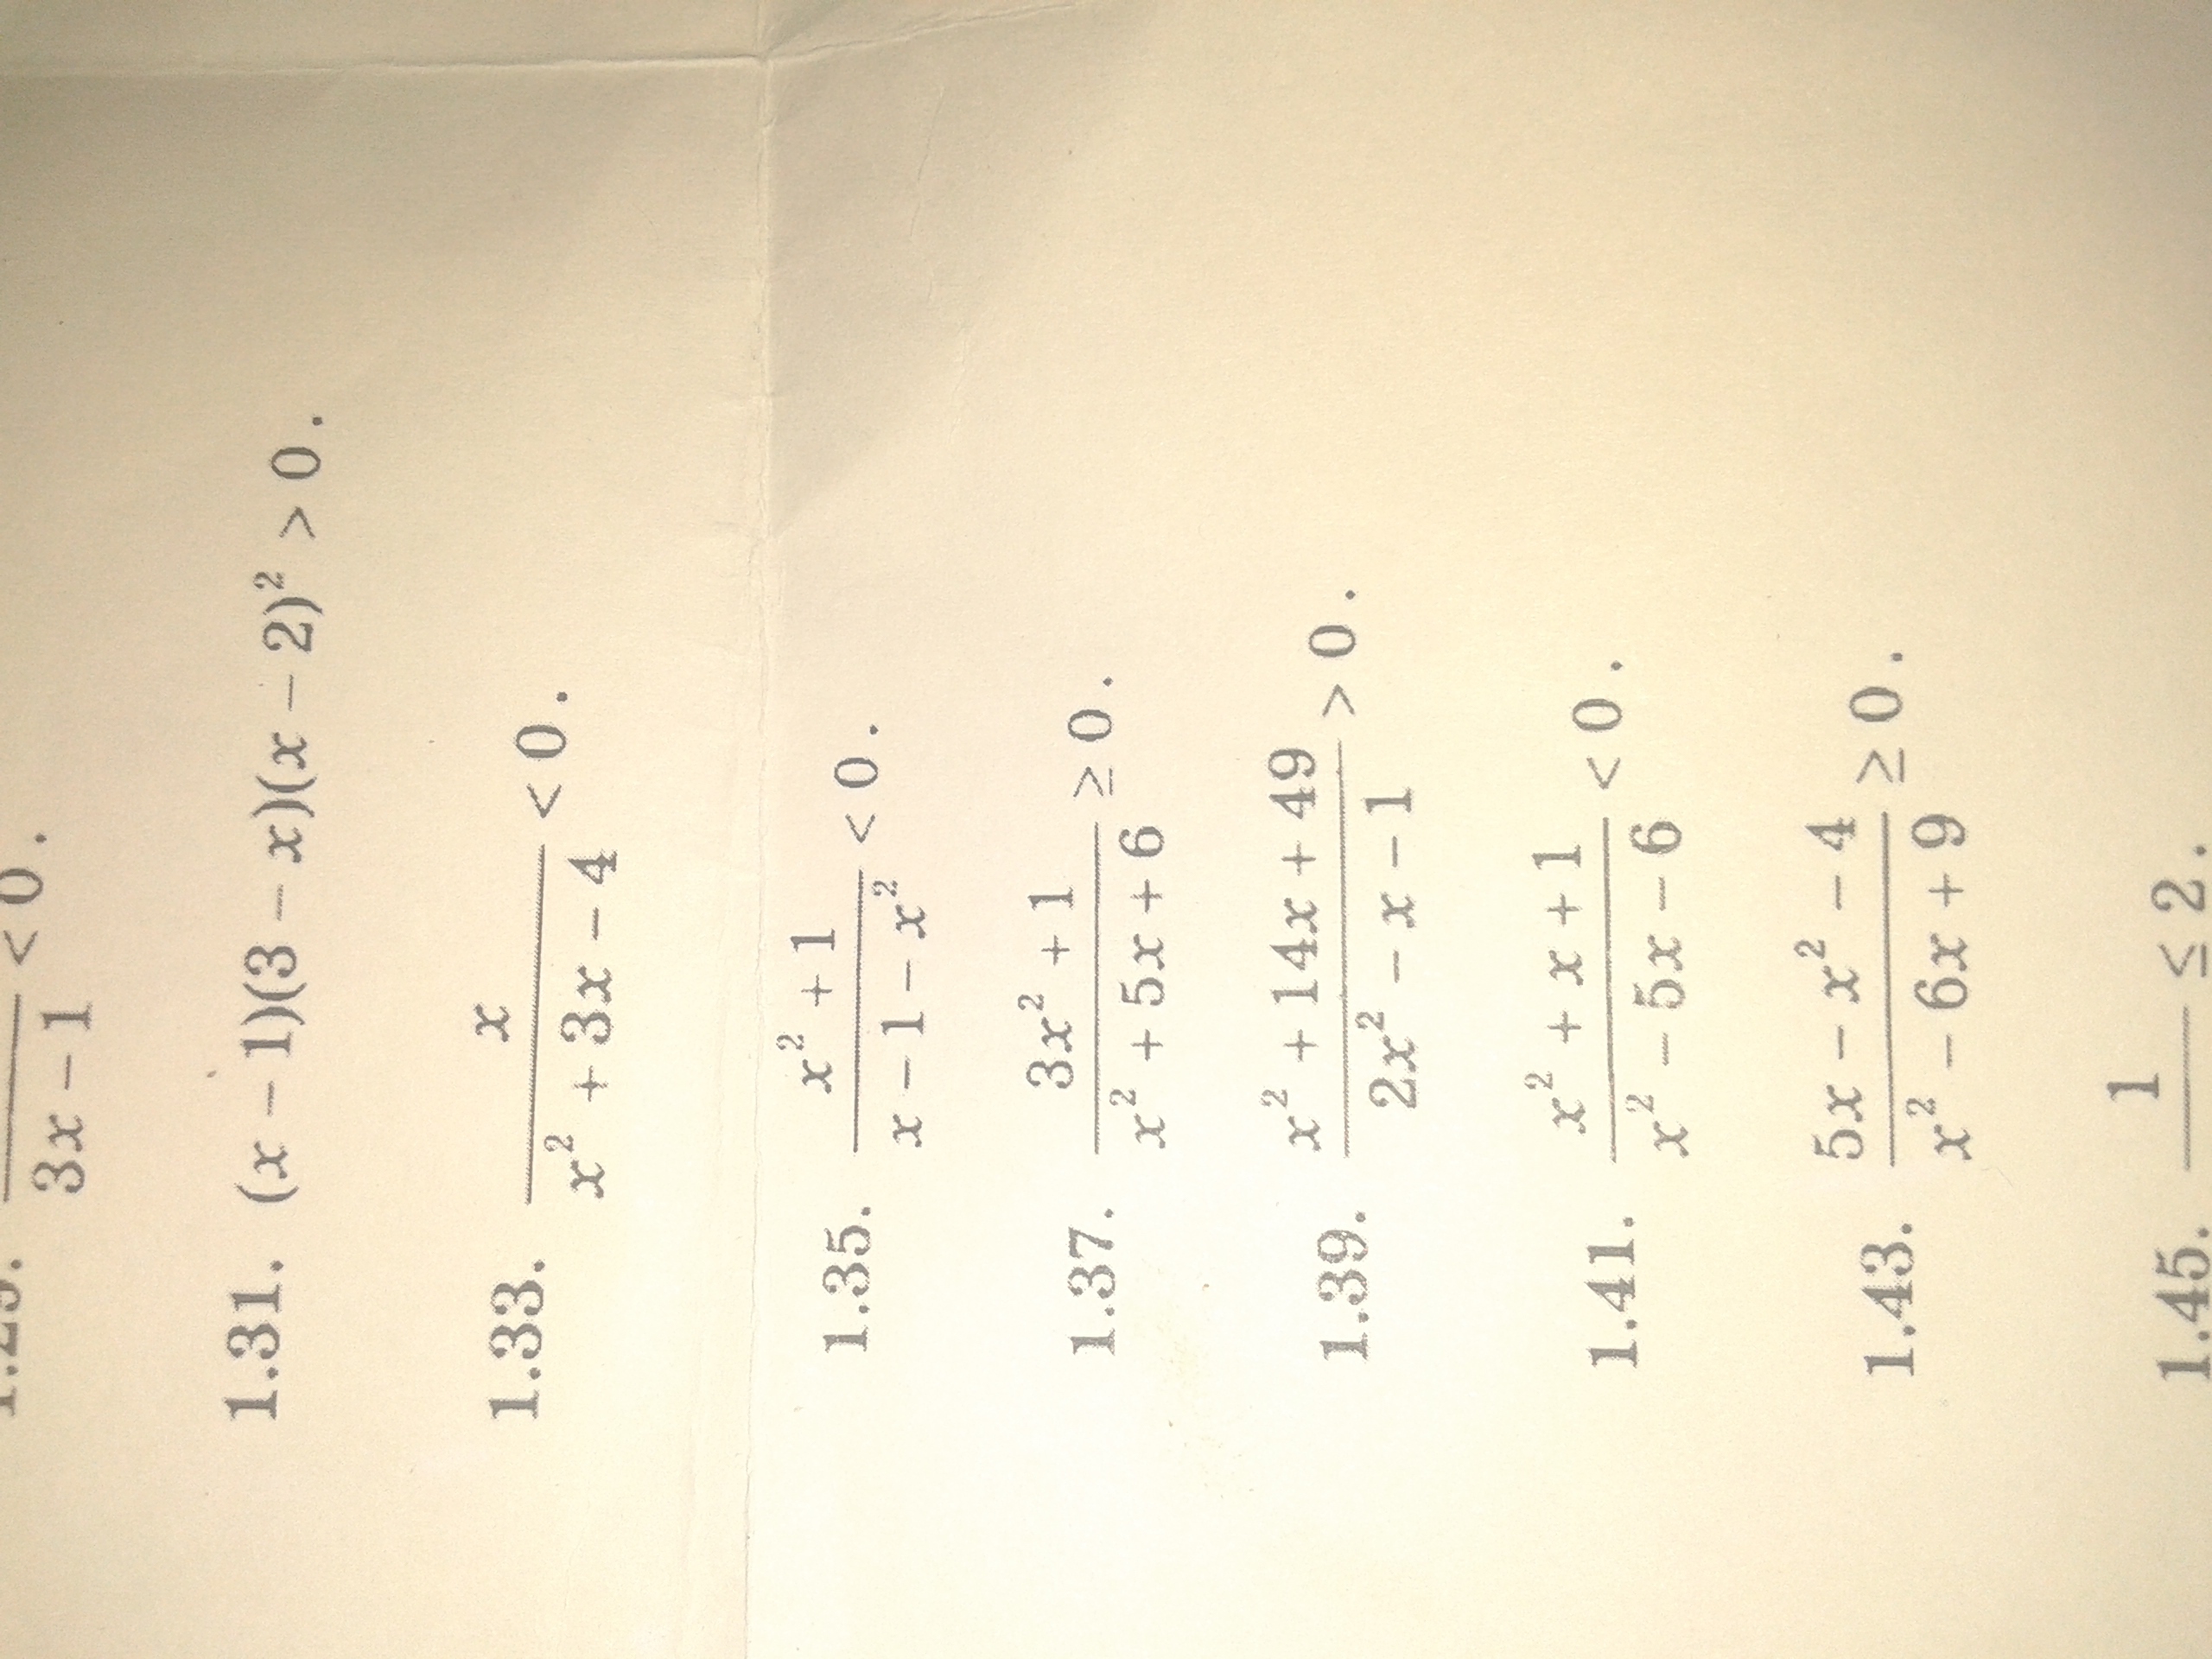 3x - 1 < 0.
1.31. (x - 1)(3 - x)(x - 2)² > 0.
1.33. x / (x² + 3x - 4) < 0.
1.35. (x² + 1) / (x - 1 - x²) < 0.
1.37. (3x² + 1) / (x² + 5x + 6) ≥ 0.
1.39. (x² + 14x + 49) / (2x² - x - 1) > 0.
1.41. (x² + x + 1) / (x² - 5x - 6) < 0.
1.43. (5x - x² - 4) / (x² - 6x + 9) ≥ 0.
1.45. 1 / ≤ 2.